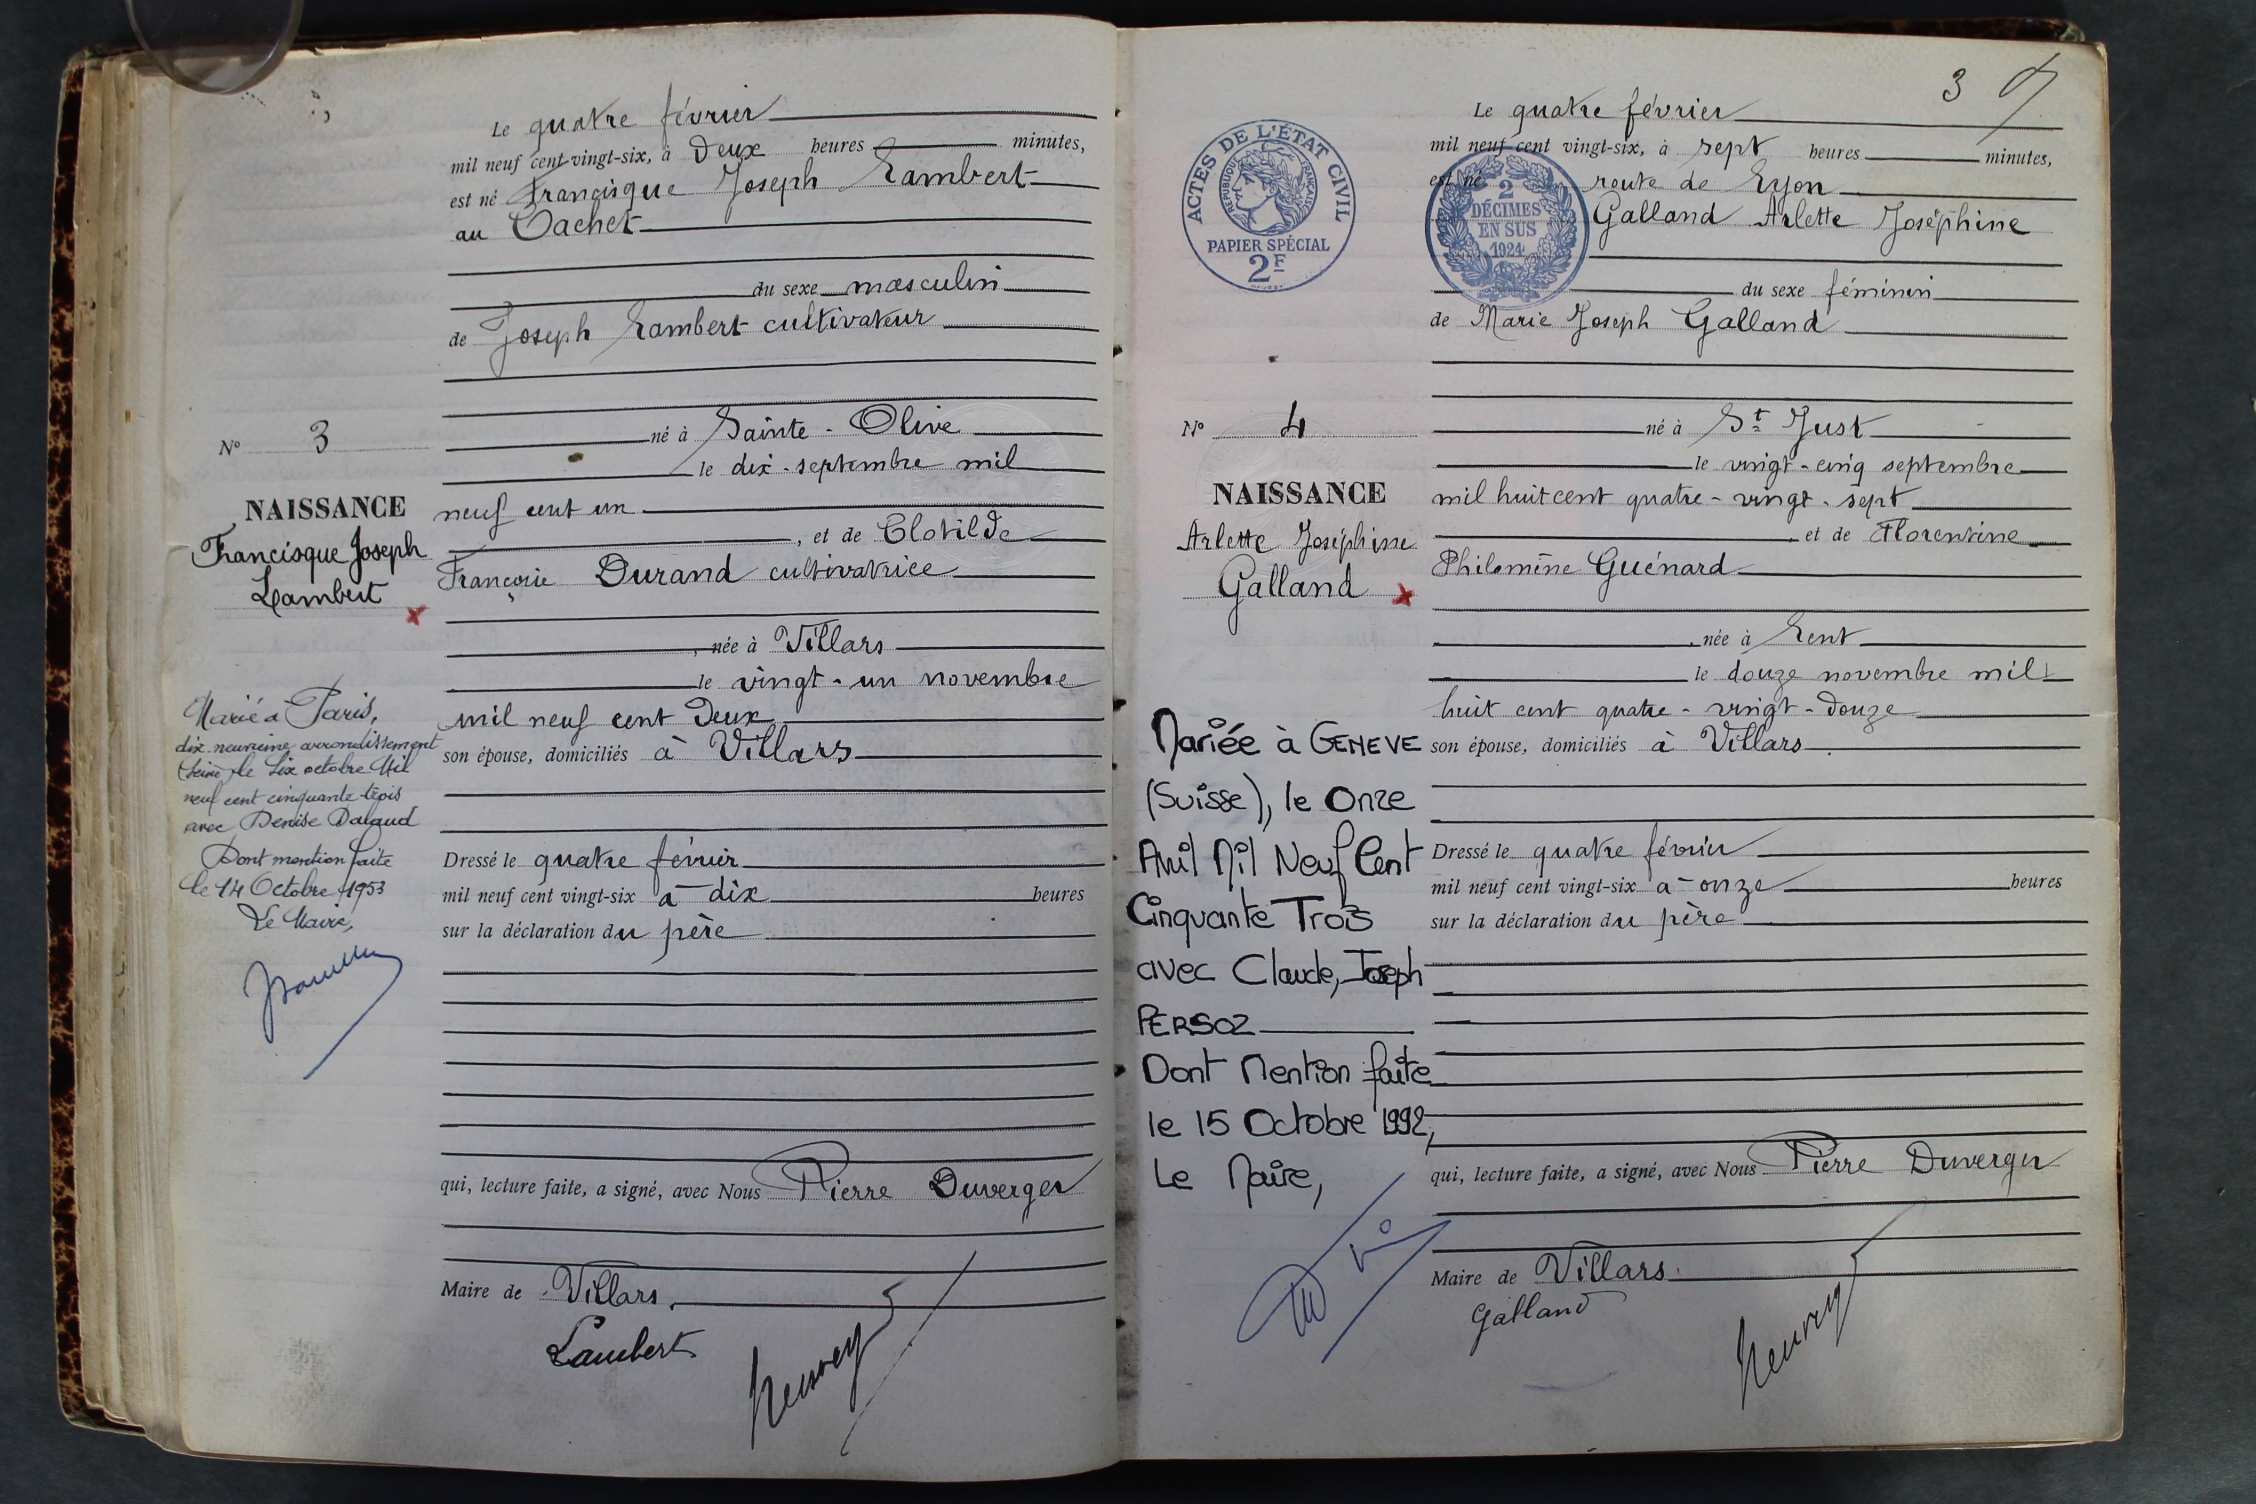 Le quatre février
mil neuf cent vingt-six, à Deux heures minutes,
est né Francisque Joseph Lambert
au Cachet
du sexe masculin
de Joseph Lambert cultivateur
N° 3
né à Sainte-Olive
le dix-septembre mil
NAISSANCE
neuf cent un
Francisque Joseph
Lambert
, et de Clotilde
Françoise Durand cultivatrice
, née à Villars
le vingt-un novembre
mil neuf cent Deux
son épouse, domiciliés à Villars
Marié à Paris,
dix neuvième arrondissement
(Seine) le six octobre Mil
neuf cent cinquante trois
avec Denise
Dont mention faite
le 14 Octobre 1953
Le Maire,
Dressé le quatre février
mil neuf cent vingt-six à dix heures
sur la déclaration du père
qui, lecture faite, a signé, avec Nous Pierre Duverger
Maire de Villars.
Lambert
3
Le quatre février
mil neuf cent vingt-six, à sept heures minutes,
est né route de Lyon
Galland Arlette Joséphine
ACTES DE L'ÉTAT CIVIL
RÉPUBLIQUE FRANÇAISE
PAPIER SPÉCIAL
2F
2
DÉCIMES
EN SUS
1924
du sexe féminin
de Marie Joseph Galland
N° 4
né à St Just
le vingt-cinq septembre
NAISSANCE
mil huit cent quatre-vingt-sept
Arlette Joséphine
Galland
et de Florentine
Philomène Guénard
, née à Lent
le douze novembre mil
huit cent quatre-vingt-douze
son épouse, domiciliés à Villars
Mariée à GENEVE
(Suisse), le Onze
Avril Mil Neuf Cent
Cinquante Trois
avec Claude, Joseph
PERSOZ
Dont Mention faite
le 15 Octobre 1992,
Le Maire,
Dressé le quatre février
mil neuf cent vingt-six à onze heures
sur la déclaration du père
qui, lecture faite, a signé, avec Nous Pierre Duverger
Maire de Villars.
Galland